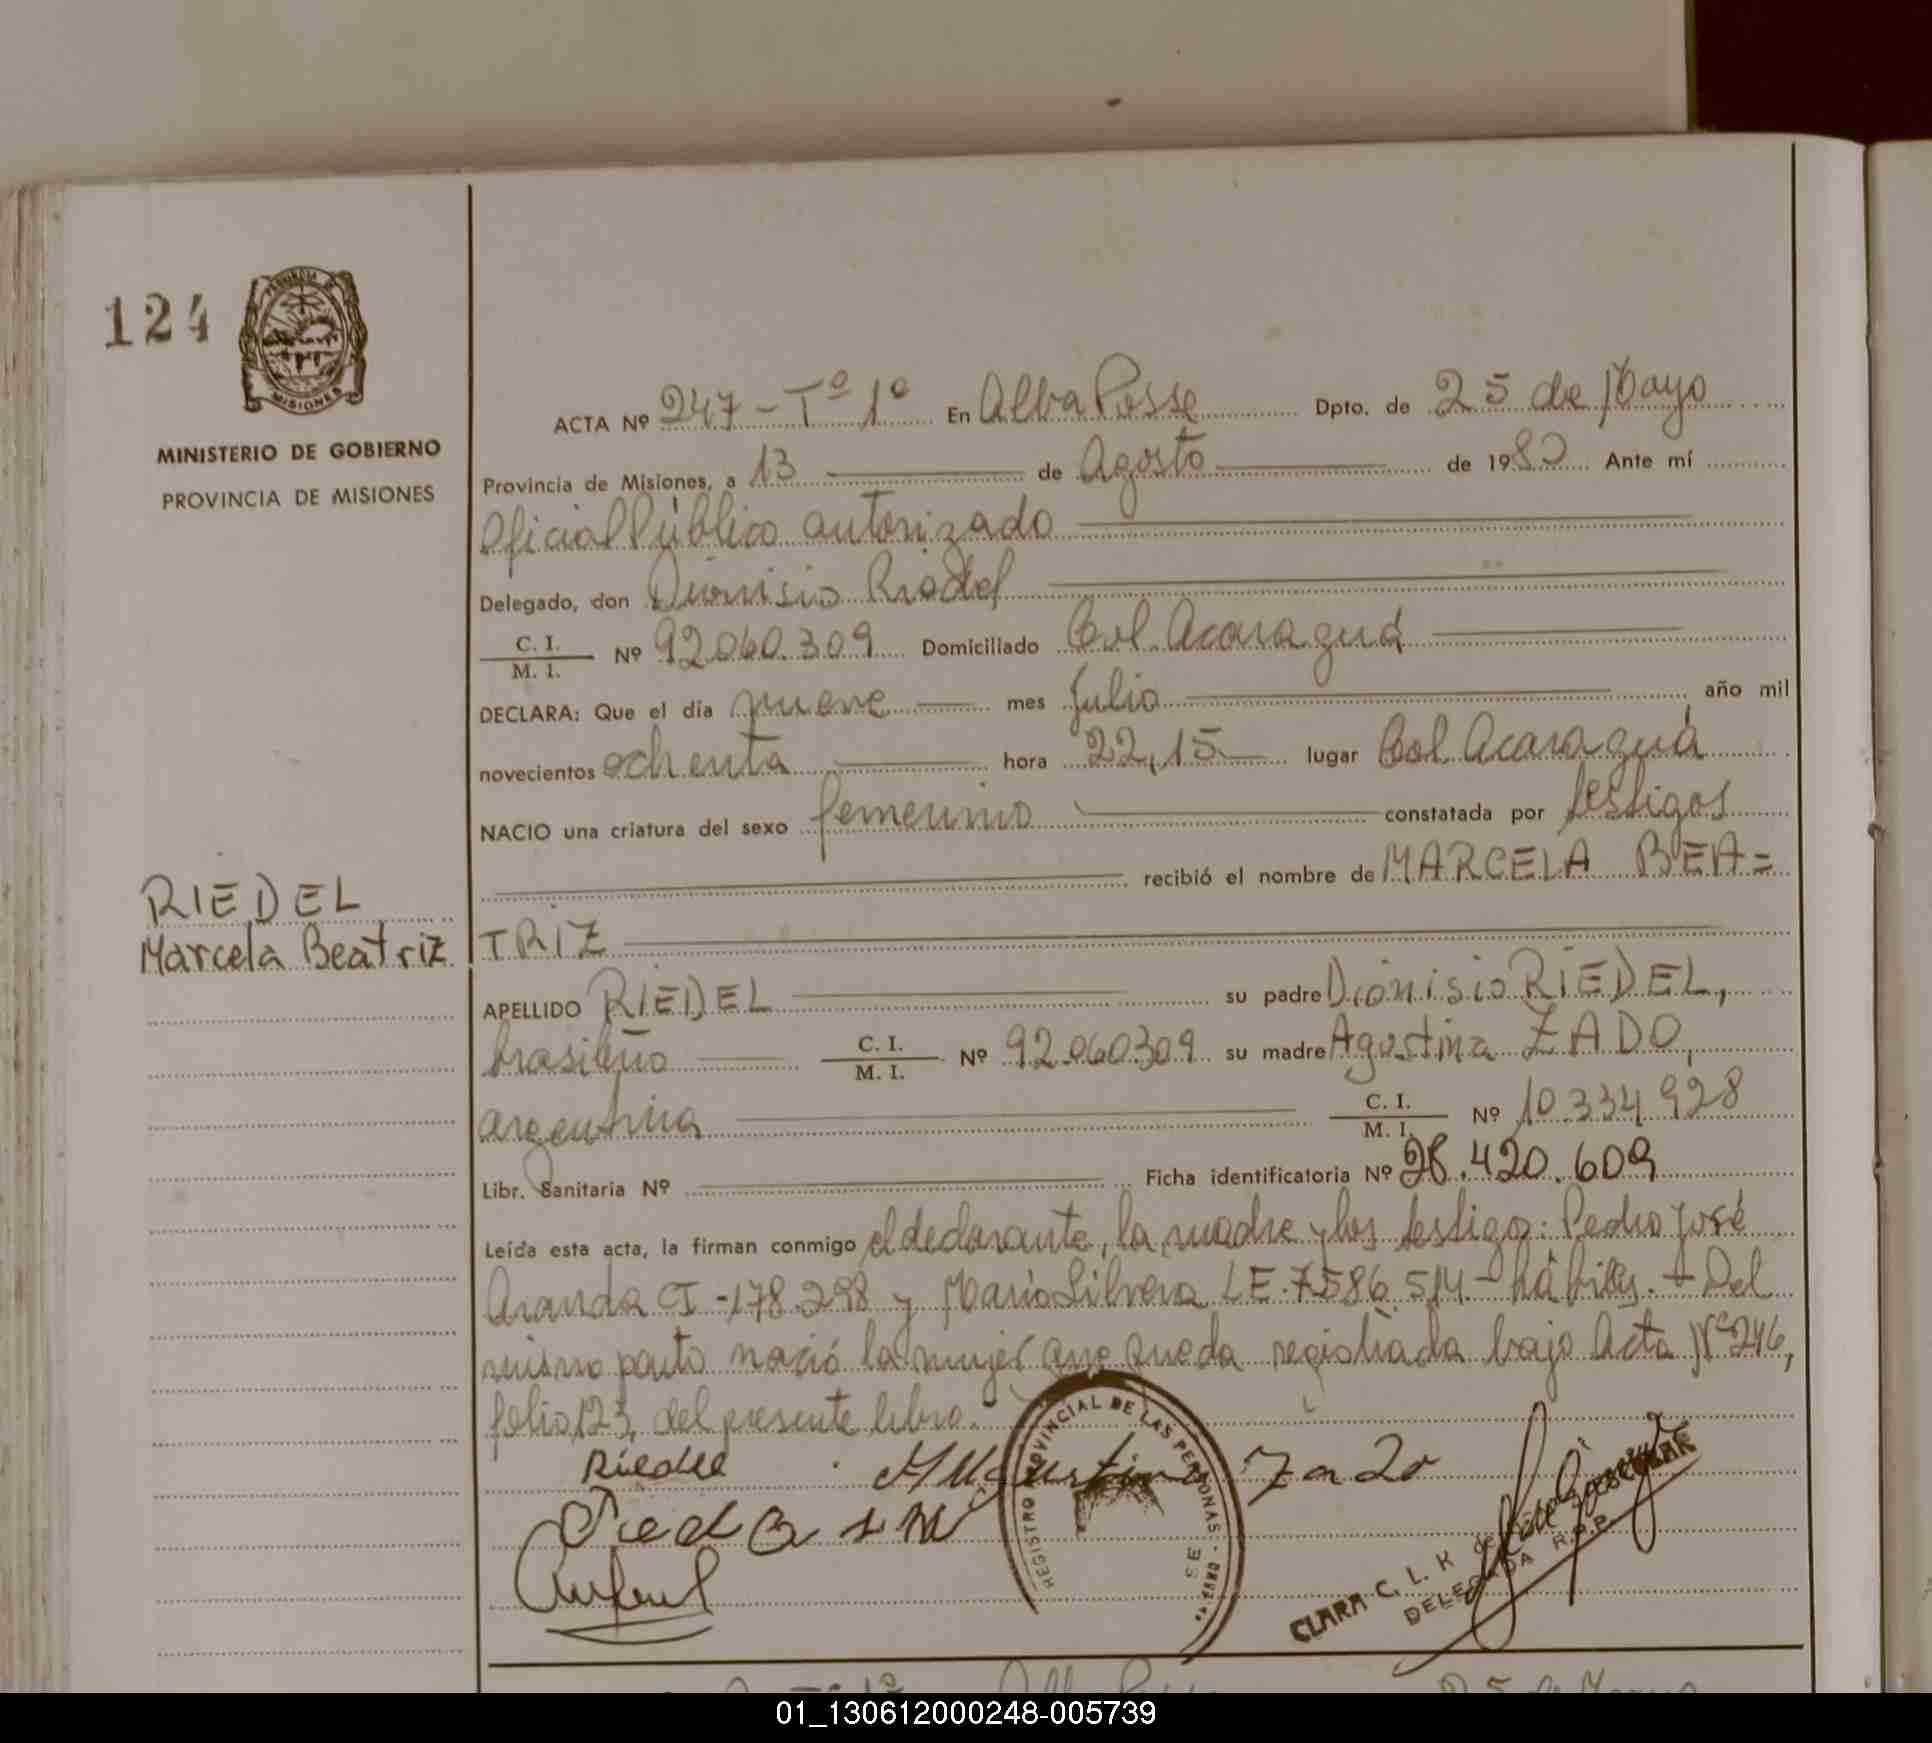 124
PROVINCIA DE
MISIONES
MINISTERIO DE GOBIERNO
PROVINCIA DE MISIONES
RIEDEL
Marcela Beatriz
ACTA Nº 247 - Tº 1º En Alba Posse Dpto. de 25 de Mayo
Provincia de Misiones, a 13 de Agosto de 1980 Ante mí
Oficial Público autorizado
Delegado, don Dionisio Riedel
C. I. / M. I. Nº 92.060.309 Domiciliado Col. Acaraguá
DECLARA: Que el día nueve mes Julio año mil
novecientos ochenta hora 22,15 lugar Col. Acaraguá
NACIO una criatura del sexo femenino constatada por testigos
recibió el nombre de MARCELA BEA=
TRIZ
APELLIDO RIEDEL su padre Dionisio RIEDEL,
brasileño C. I. / M. I. Nº 92.060.309 su madre Agustina ZADO,
argentina C. I. / M. I. Nº 10.334.928
Libr. Sanitaria Nº Ficha identificatoria Nº 28.420.609
Leída esta acta, la firman conmigo el declarante, la madre y los testigos: Pedro José
Aranda CI - 178.298 y Mario Silvera LE. 7.586.514 - hábiles. - Del
mismo parto nació la mujer que queda registrada bajo Acta Nº 246,
folio 123, del presente libro.-
REGISTRO PROVINCIAL DE LAS PERSONAS
CLARA C. L. K de ESCOBAR
DELEGADA R.P.P.
Alba Posse 25 de Mayo
01_130612000248-005739